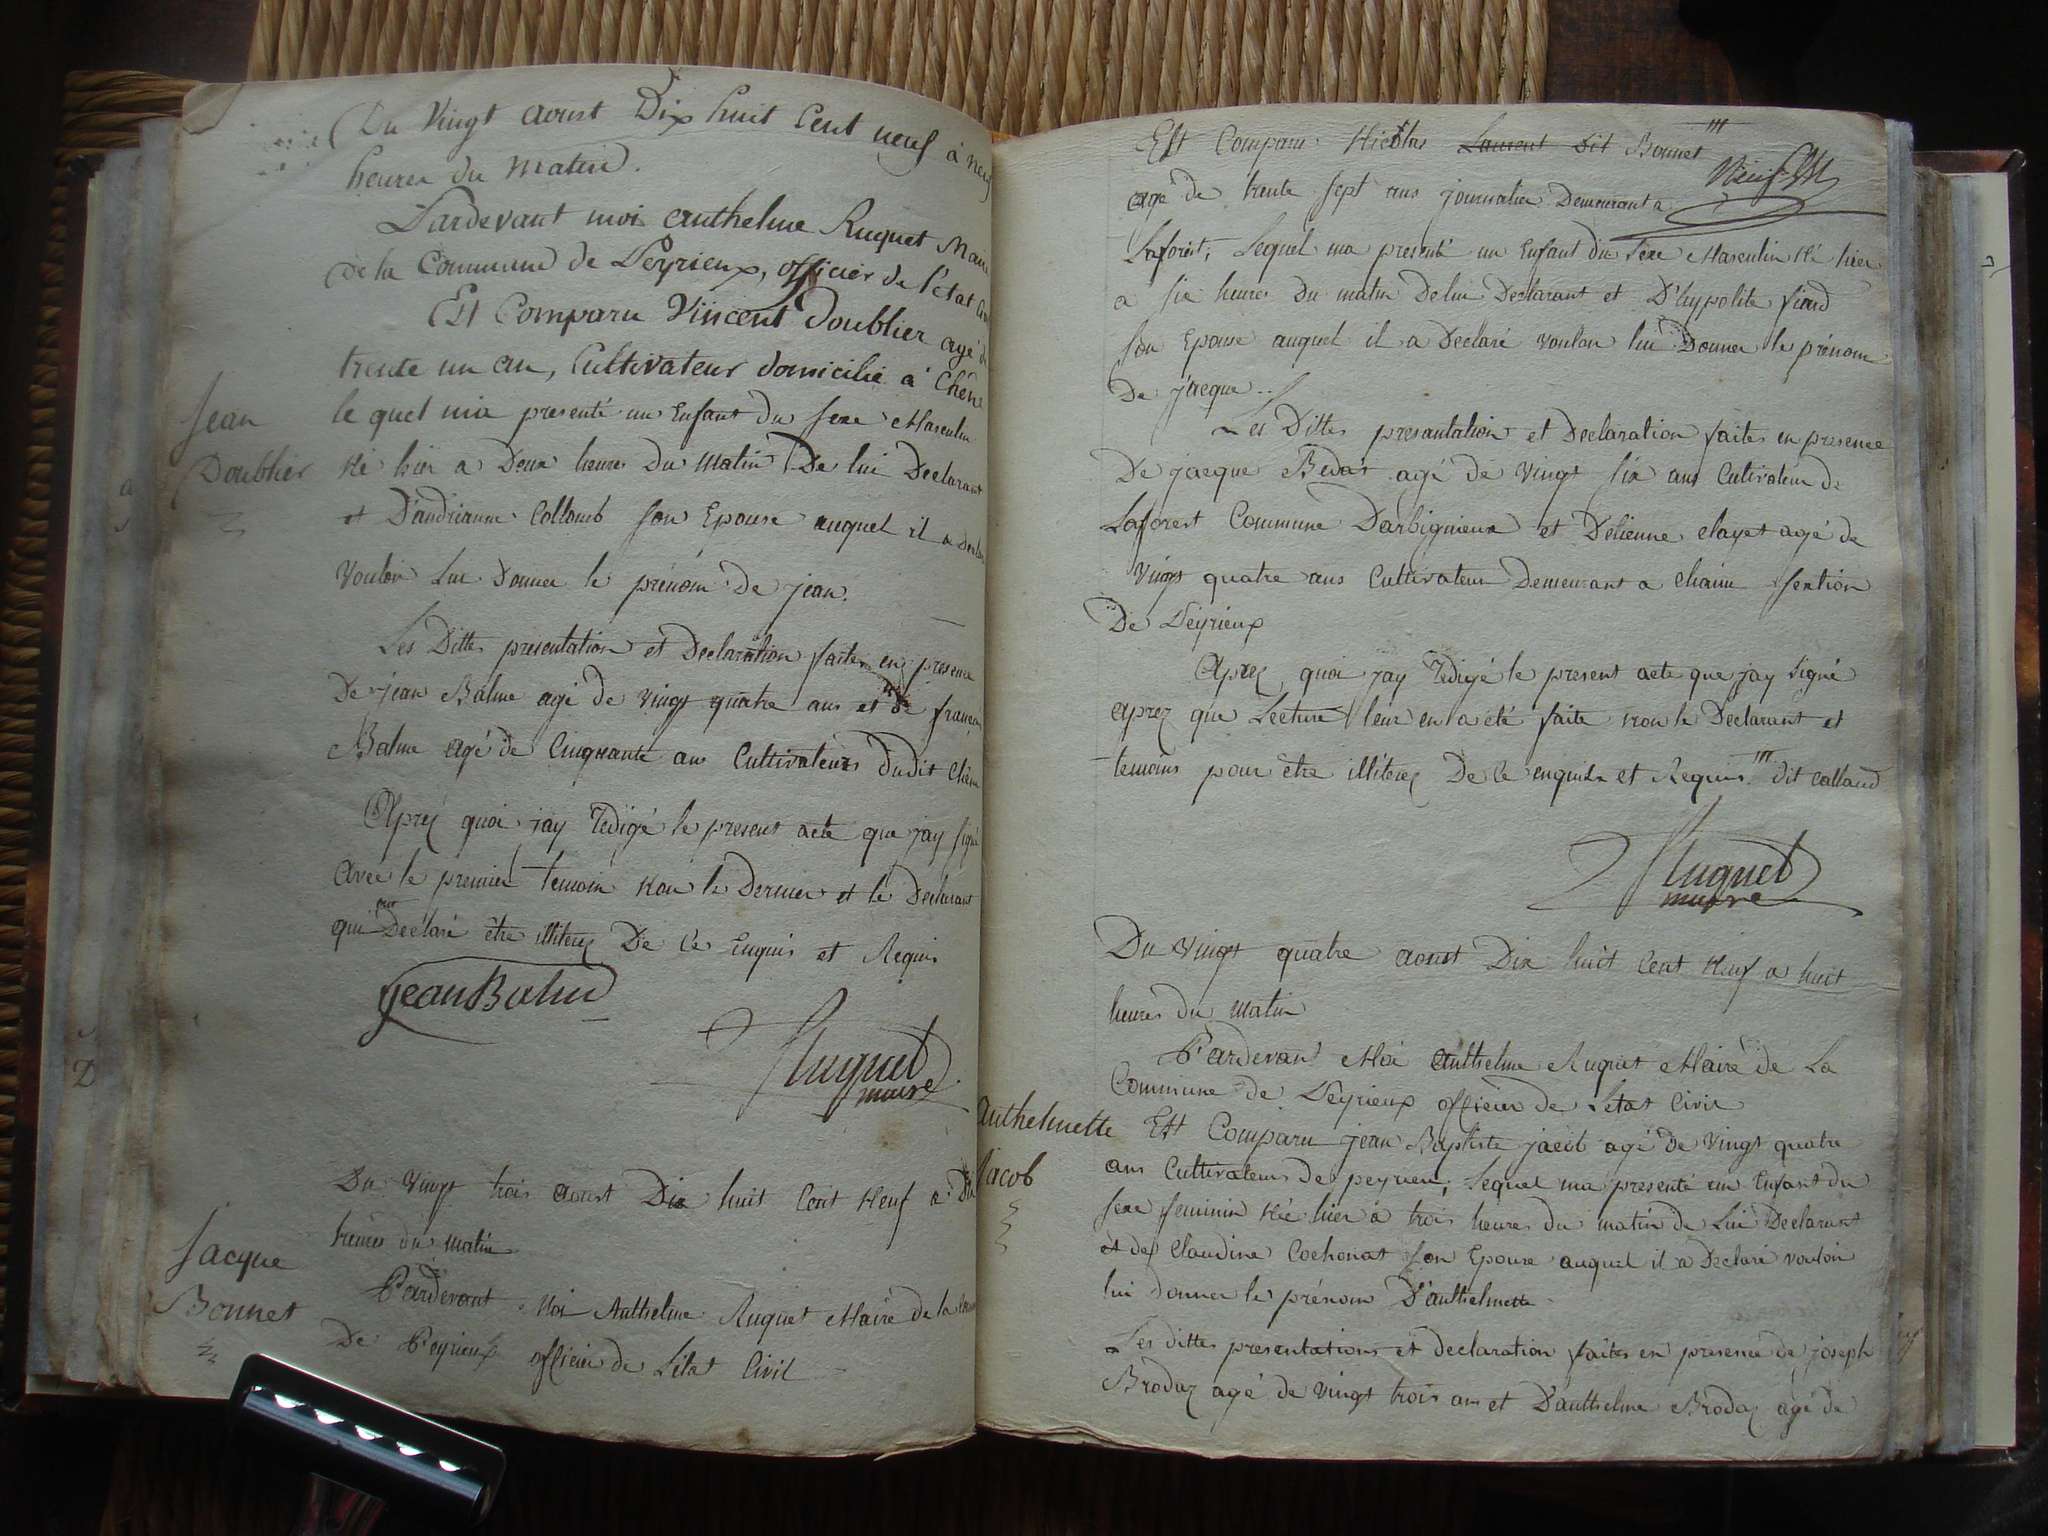 Du Vingt aoust Dix huit Cent neuf à neuf
heures du Matin.
Pardevant moi Authelme Ruquet Maire
de la Commune de Peyrieux, officier de l'état Civil
Est Comparu Vincent Doublier agé de
trente un an, Cultivateur domicilié à Chêne
Jean
Doublier
le quel m'a presenté un Enfant du sexe Masculin
Né hier a Deux heures Du Matin De lui Declarant
et D'andrianne Collomb son Epouse auquel il a declaré
vouloir lui Donner le prénom De jean.
Les Dittes presentation et Declaration faites en presence
De jean Balme agé de vingt quatre ans et de francois
Balme agé de Cinquante ans Cultivateurs dudit Chêne
Aprez quoi jay redigé le present acte que jay signé
avec le premier temoin Non le Dernier et le Declarant
qui ont Déclaré être illiterez De Ce Enquis et Requis
jean Balme
Ruquet
maire
Du Vingt trois aoust Dix huit Cent Neuf a Dix
heures du matin
Jacque
Bonnet
Pardevant Moi Authelme Ruquet Maire de la Commune
De Peyrieux officier de L'état Civil
Est Comparu Nicolas Laurent dit Bonnet
agé de trente sept ans journalier Demeurant a
Laforest, Lequel ma presenté un Enfant du sexe Masculin Né hier
a six heures Du matin De lui Declarant et D'hypolite fiard
son Epouse auquel il a Declaré vouloir lui Donner le prénom
De jacque.
Les Dittes presantation et Declaration faites en presence
De jacque Bedat agé de vingt six ans Cultivateur de
Laforest Commune Darbignieux et Detienne clayet agé de
vingt quatre ans Cultivateur Demeurant a Chaine section
De Peyrieux
Aprez quoi jay redigé le present acte que jay signé
aprez que Lecture leur en a été faite non le Declarant et
temoins pour être illiterez De Ce enquis et Requis. dit calland
Ruquet
maire
Du Vingt quatre aoust Dix huit Cent Neuf a huit
heures du matin
Pardevan Moi Authelme Ruquet Maire de La
Commune de Peyrieux officier de L'état Civil
Authelmette
Jacob
Est Comparu jean Baptiste jacob agé de vingt quatre
ans Cultivateur de peyrieu, Lequel ma presenté un Enfant du
sexe feminin Né hier à trois heures du matin de Lui Declarant
et de Claudine Cochonat son Epouse auquel il a Declaré vouloir
lui donner le prénom D'authelmette
Les dittes presentations et declaration faites en presence de joseph
Brodaz agé de vingt trois ans et D'authelme Brodaz agé de